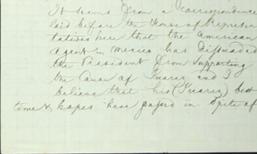 It seems from a correspondence
laid before the House of Represen
tatives here that the American
Agent in Mexico has dissuaded
the President from supporting
the Cause of Juarez and I
believe that his (Juarez) best
time & hopes have passed in spite of